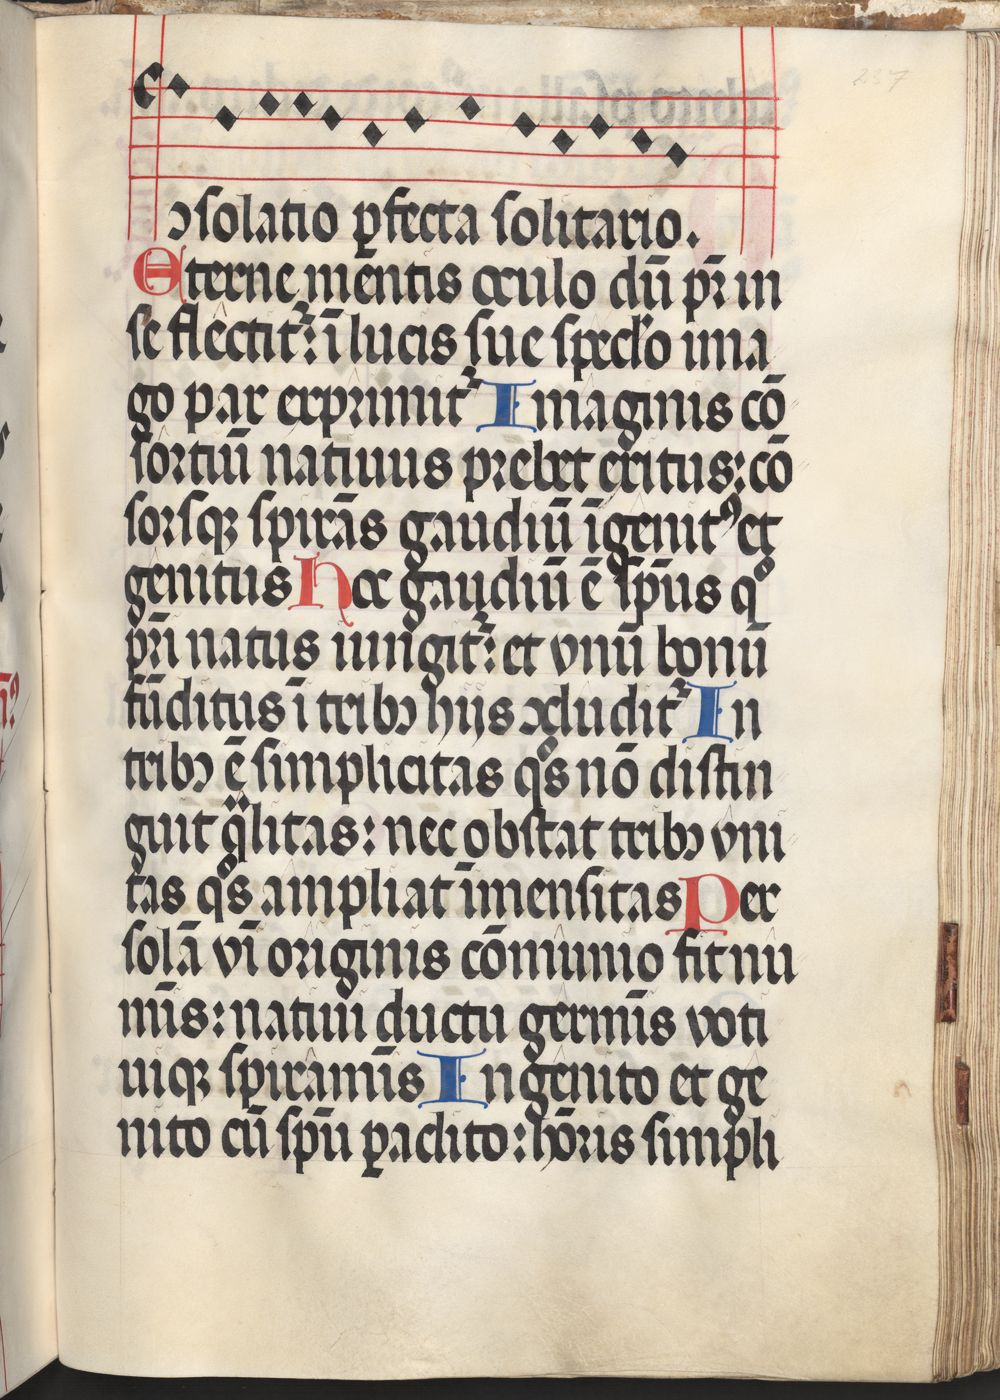 237
ↄsolatio ꝑfecta solitario.
Eterne mentis oculo dū pr̄ in
se flectit᷑: ī lucis sue spēclo ima
go par exprimit᷑ Imaginis cō
sortiū natiuus prebet exitus: cō
sorsqꝫ spirās gaudiū īgenitꝰ et
genitus Hoc gaudiū ē sp̄us qͦ
pr̄i natus iungit᷑: et vnū bonū
fūditus ī tribꝫ hijs ↄcludit᷑ In
tribꝫ ē simplicitas qͦs nō distin
guit qͣlitas: nec obstat tribꝫ vni
tas qͦs ampliat īmensitas Per
solā vī originis cōmunio fit nu
mīs: natiui ductu germīs voti
uiqꝫ spiramīs Ingenito et ge
nito cū sp̄u ꝑaclito: hōris simpli